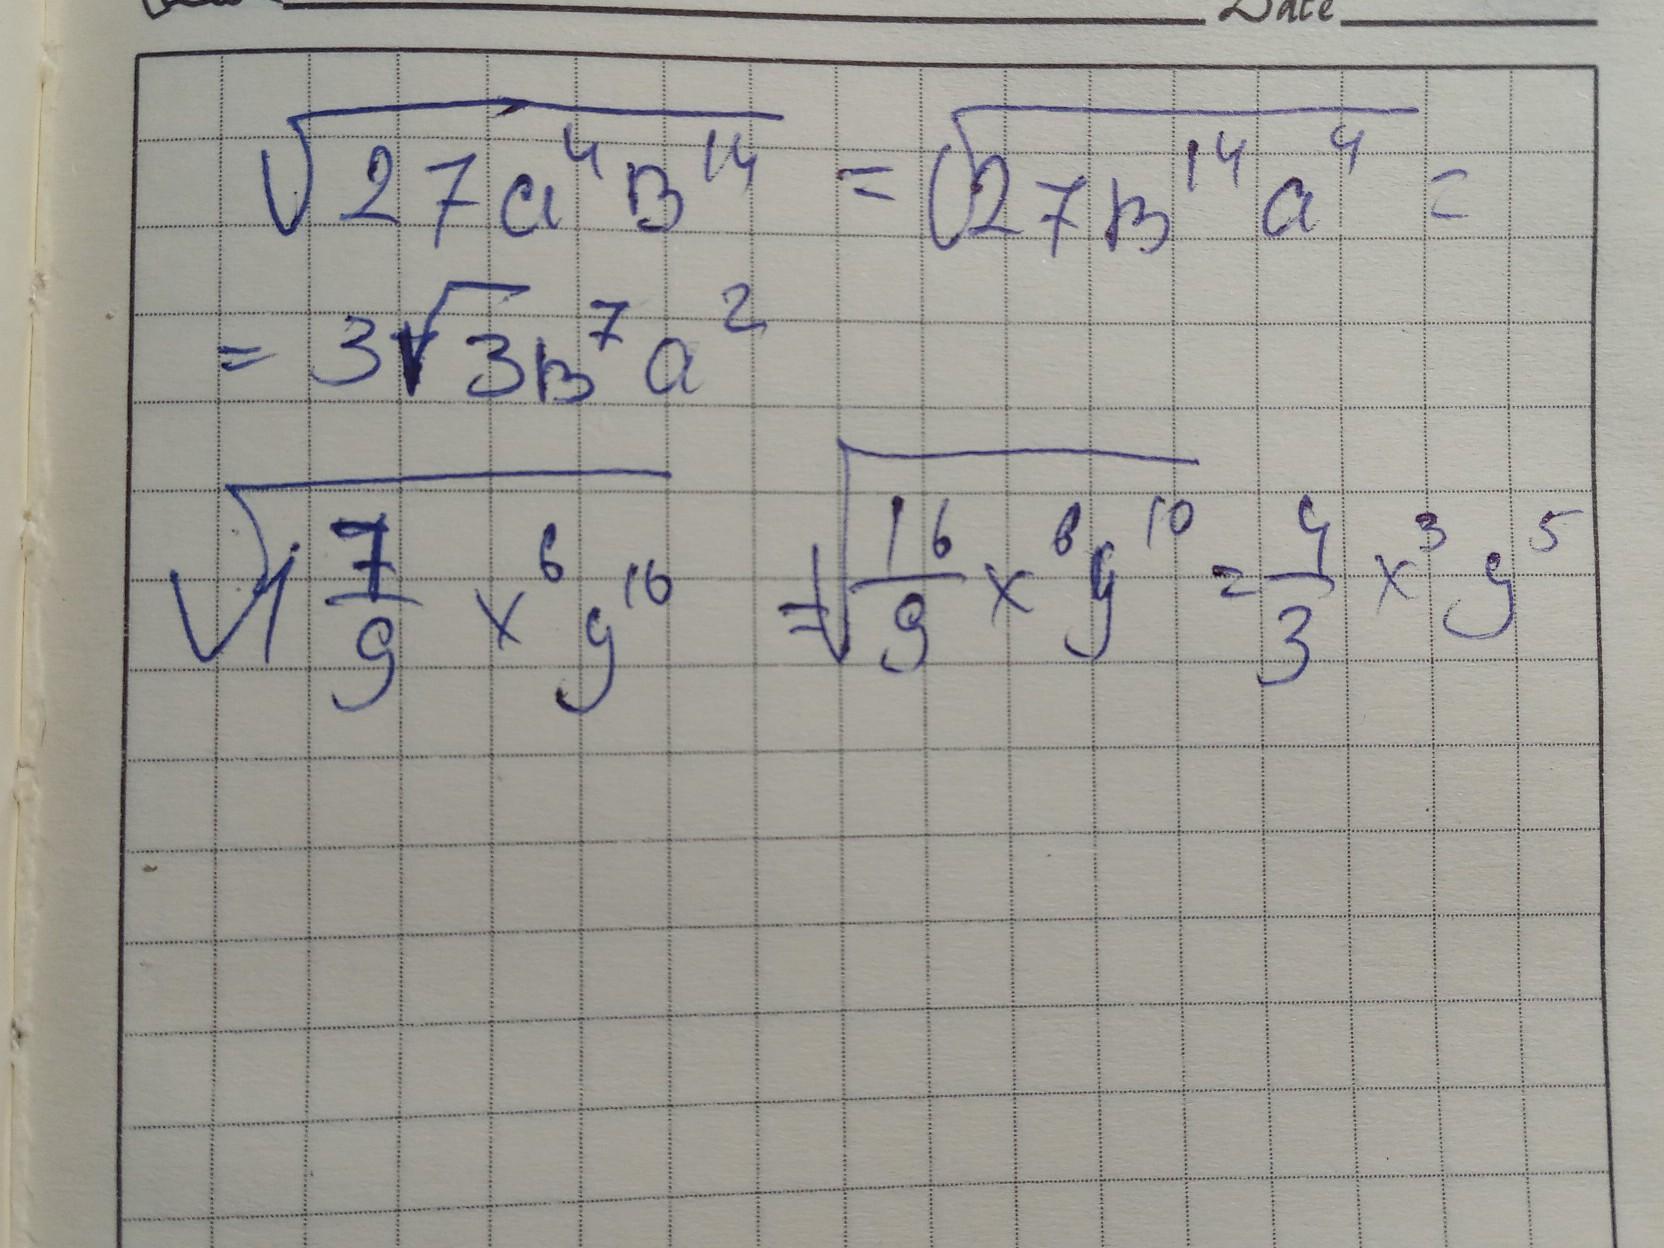 Date
√27a⁴в¹⁴ = √27в¹⁴a⁴ =
= 3√3в⁷a²
√1 7/9 x⁶y¹⁰ = √16/9 x⁶y¹⁰ = 4/3 x³y⁵